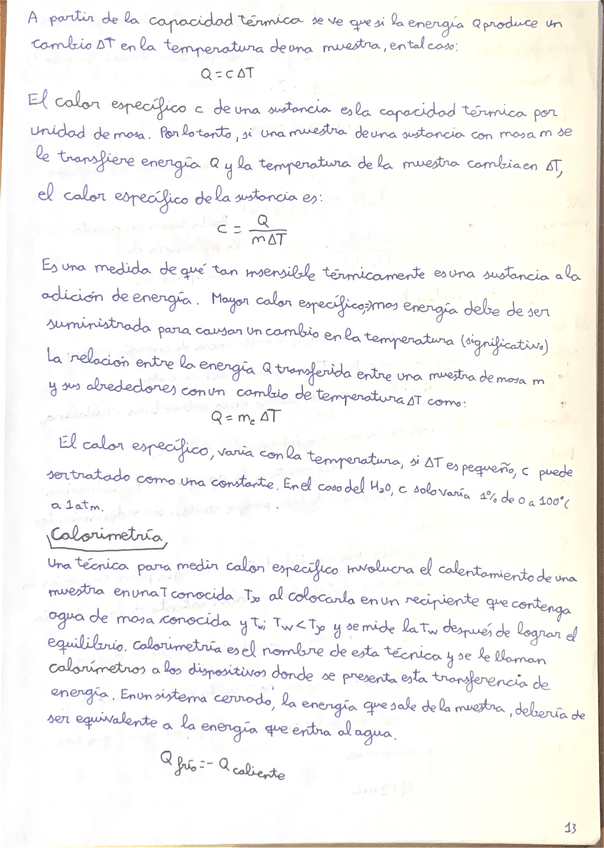 A partir de la capacidad térmica se ve que si la energía Q produce un
cambio ΔT en la temperatura de una muestra, en tal caso:
Q = c ΔT
El calor específico c de una sustancia es la capacidad térmica por
unidad de masa. Por lo tanto, si una muestra de una sustancia con masa m se
le transfiere energía Q y la temperatura de la muestra cambia en ΔT,
el calor específico de la sustancia es:
c = Q / mΔT
Es una medida de qué tan insensible térmicamente es una sustancia a la
adición de energía. Mayor calor específico ⇒ mas energía debe de ser
suministrada para causar un cambio en la temperatura (significativo)
La relación entre la energía Q transferida entre una muestra de masa m
y sus alrededores con un cambio de temperatura ΔT como:
Q = mc ΔT
El calor específico, varia con la temperatura, si ΔT es pequeño, c puede
ser tratado como una constante. En el caso del H2O, c solo varía 1% de 0 a 100°C
a 1 atm.
Calorimetría
Una técnica para medir calor específico involucra el calentamiento de una
muestra en una T conocida al colocarla en un recipiente que contenga
agua de masa conocida y Tw; Tw < y se mide la Tw después de lograr el
equilibrio. Calorimetría es el nombre de esta técnica y se le llaman
calorímetros a los dispositivos donde se presenta esta transferencia de
energía. En un sistema cerrado, la energía que sale de la muestra, debería de
ser equivalente a la energía que entra al agua.
Q frío = - Q caliente
13